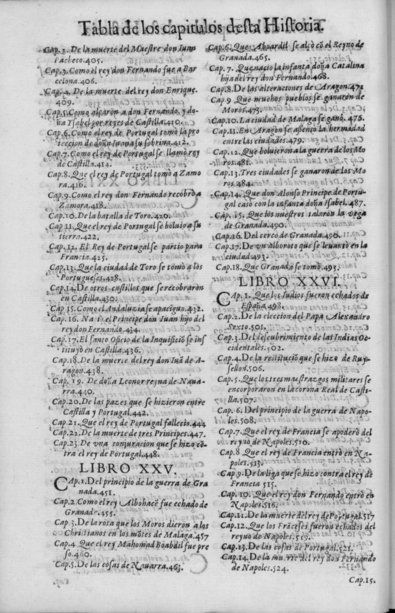 Tabla de los capitulos desta Historia.
Cap. 2. De la muerte del Maestre don Iuan
Pacheco. 405.
Cap. 3. Como el rey don Fernando fue a Bar
celona. 406.
Cap. 4. De la muerte del rey don Enrique.
409.
Cap. 5. Como alçaron a don Fernando, y do
ña Isabel por reyes de Castilla. 410.
Cap. 6. Como el rey de Portugal tomo la pro
teccion de doña Iuana su sobrina. 412.
Cap. 7. Como el rey de Portugal se llamo rey
de Castilla. 414.
Cap. 8. Que el rey de Portugal tomo a Zamo
ra. 416.
Cap. 9. Como el rey don Fernando recobro a
Zamora. 418.
Cap. 10. De la batalla de Toro. 420.
Cap. 11. Que el rey de Portugal se boluio a su
tierra. 422.
Cap. 12. El Rey de Portugal se partio para
Francia. 425.
Cap. 13. Que la ciudad de Toro se tomò a los
Portugueses. 428.
Cap. 14. De otros castillos que se recobraron
en Castilla. 430.
Cap. 15. Como el Andaluzia se apaciguò. 432.
Cap. 16. Nació el Principe don Iuan hijo del
rey don Fernando. 434.
Cap. 17. El santo Oficio de la Inquisiciõ se ins
tituyò en Castilla. 436.
Cap. 18. De la muerte del rey don Iuã de A-
ragon. 438.
Cap. 19. De doña Leonor reyna de Naua-
rra. 440.
Cap. 20. De las pazes que se hizieron entre
Castilla y Portugal. 442.
Cap. 21. Que el rey de Portugal fallecio. 444.
Cap. 22. De la muerte de tres Principes. 447.
Cap. 23. De una conjuracion que se hizo cõ
tra el rey de Portugal. 448.
LIBRO XXV.
Cap. 1. Del principio de la guerra de Gra
nada. 451.
Cap. 2. Como el rey Albohacẽ fue echado de
Granada. 455.
Cap. 3. De la rota que los Moros dieron a los
Christianos en los mõtes de Malaga. 457
Cap. 4. Que el rey Mahomad Boabdil fue pre
so. 460.
Cap. 5. De las cosas de Nauarra. 463.
Cap. 6. Que Abuardil se alçò cõ el Reyno de
Granada. 465.
Cap. 7. Que nacio la infanta doña Catalina
hija del rey don Fernando. 468.
Cap. 8. De las alteraciones de Aragon. 471
Cap. 9. Que muchos pueblos se ganaron de
Moros. 475.
Cap. 10. La ciudad de Malaga se ganò. 476.
Cap. 11. En Aragõn se assentò la hermandad
entre las ciudades.
Cap. 12. Que boluieron a la guerra de los Mo
ros. 481.
Cap. 13. Tres ciudades se ganaron de los Mo
ros. 484.
Cap. 14. Que don Alonso Principe de Portu
gal casò con la infanta doña Isabel. 487.
Cap. 15. Que los nuestros talaron la vega
de Granada. 490.
Cap. 16. Del cerco de Granada. 496.
Cap. 17. De un alboroto que se leuantò en la
ciudad. 493.
Cap. 18. Que Granada se tomò. 495.
LIBRO XXVI.
Cap. 1. Que los Iudios fueron echados de
España. 498.
Cap. 2. De la eleccion del Papa Alexandro
Sexto. 501.
Cap. 3. Del descubrimiento de las Indias Oc
cidentales. 502.
Cap. 4. De la restituciõ que se hizo de Ruy-
sellon. 506.
Cap. 5. Que los tres maestrazgos militares se
encorporaron en la corona Real de Casti-
lla. 507.
Cap. 6. Del principio de la guerra de Napo-
les. 508.
Cap. 7. Que el rey de Francia se apoderò del
reyno de Napoles. 510.
Cap. 8. Que el rey de Francia entrò en Na-
poles. 513.
Cap. 9. De la liga que se hizo contra el rey de
Francia 515.
Cap. 10. Que el rey don Fernando entrò en
Napoles. 516.
Cap. 11. De la muerte del rey de Portugal. 517
Cap. 12. Que los Frãceses fueron echados del
reyno de Napoles. 519.
Cap. 13. De las cosas de Portugal. 521.
Cap. 14. De la muerte del rey don Fernando
de Napoles. 524.
Cap. 15.